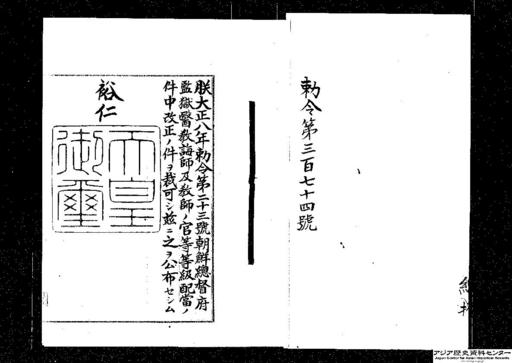 勅令第三百七十四號
朕大正八年勅令第二十三號朝鮮總督府
監獄醫教誨師及教師ノ官等等級配當ノ
件中改正ノ件ヲ裁可シ茲ニ之ヲ公布セシム
裕仁
天皇
御璽
アジア歴史資料センター
Japan Center for Asian Historical Records